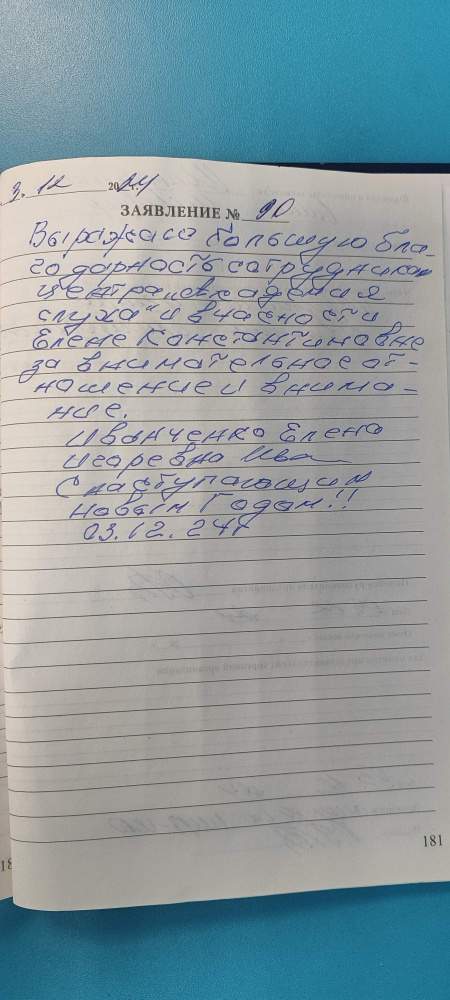 3. 12 2024
ЗАЯВЛЕНИЕ № 90
Выражаю большую бла-
годарность сотрудникам
центра „Академия
слуха" и вчасности
Елене Константиновне
за внимательное от-
ношение и внима-
ние.
Иванченко Елена
Игоревна Ива
С наступающим
Новым Годом!!
03.12.24г
181